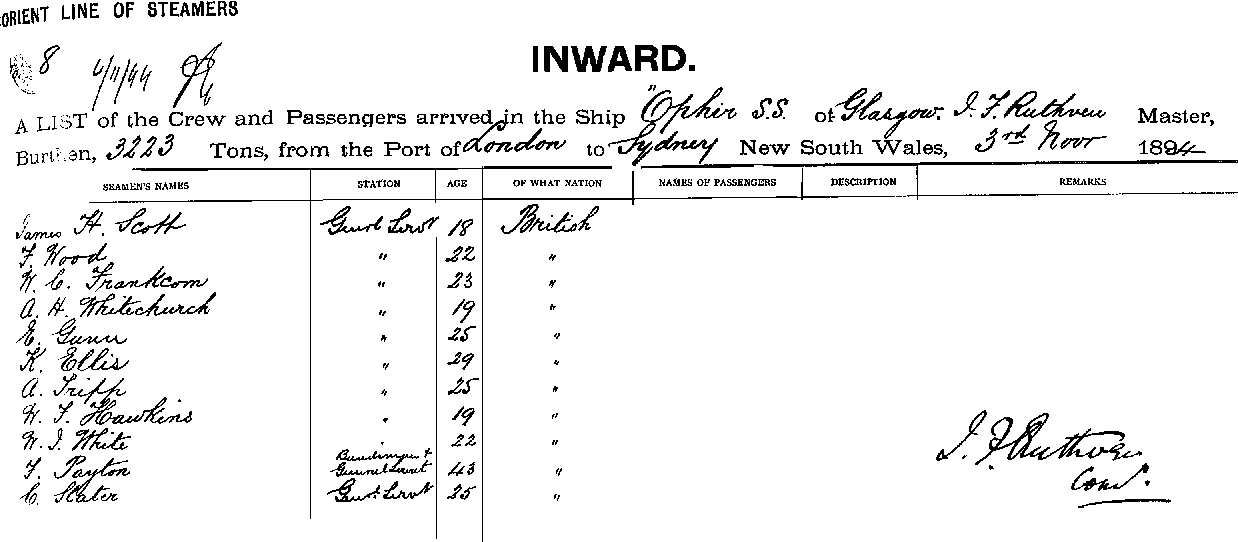 ORIENT LINE OF STEAMERS
8 6/11/94
INWARD.
A LIST of the Crew and Passengers arrived in the Ship "Ophir S.S. of Glasgow. J. F. Ruthven Master,
Burthen, 3223 Tons, from the Port of London to Sydney New South Wales, 3rd Novr 1894
SEAMEN'S NAMES STATION AGE OF WHAT NATION NAMES OF PASSENGERS DESCRIPTION REMARKS
James H. Scott Genrl Servt 18 British
F. Wood " 22 "
W. C. Frankcom " 23 "
A. H. Whitechurch " 19 "
E. Gunn " 25 "
K. Ellis " 29 "
A. Tripp " 25 "
W. F. Hawkins " 19 "
W. J. White " 22 "
F. Payton General Servt 43 "
C. Slater Genl. Servt 25 "
J. F. Ruthven
Comr.